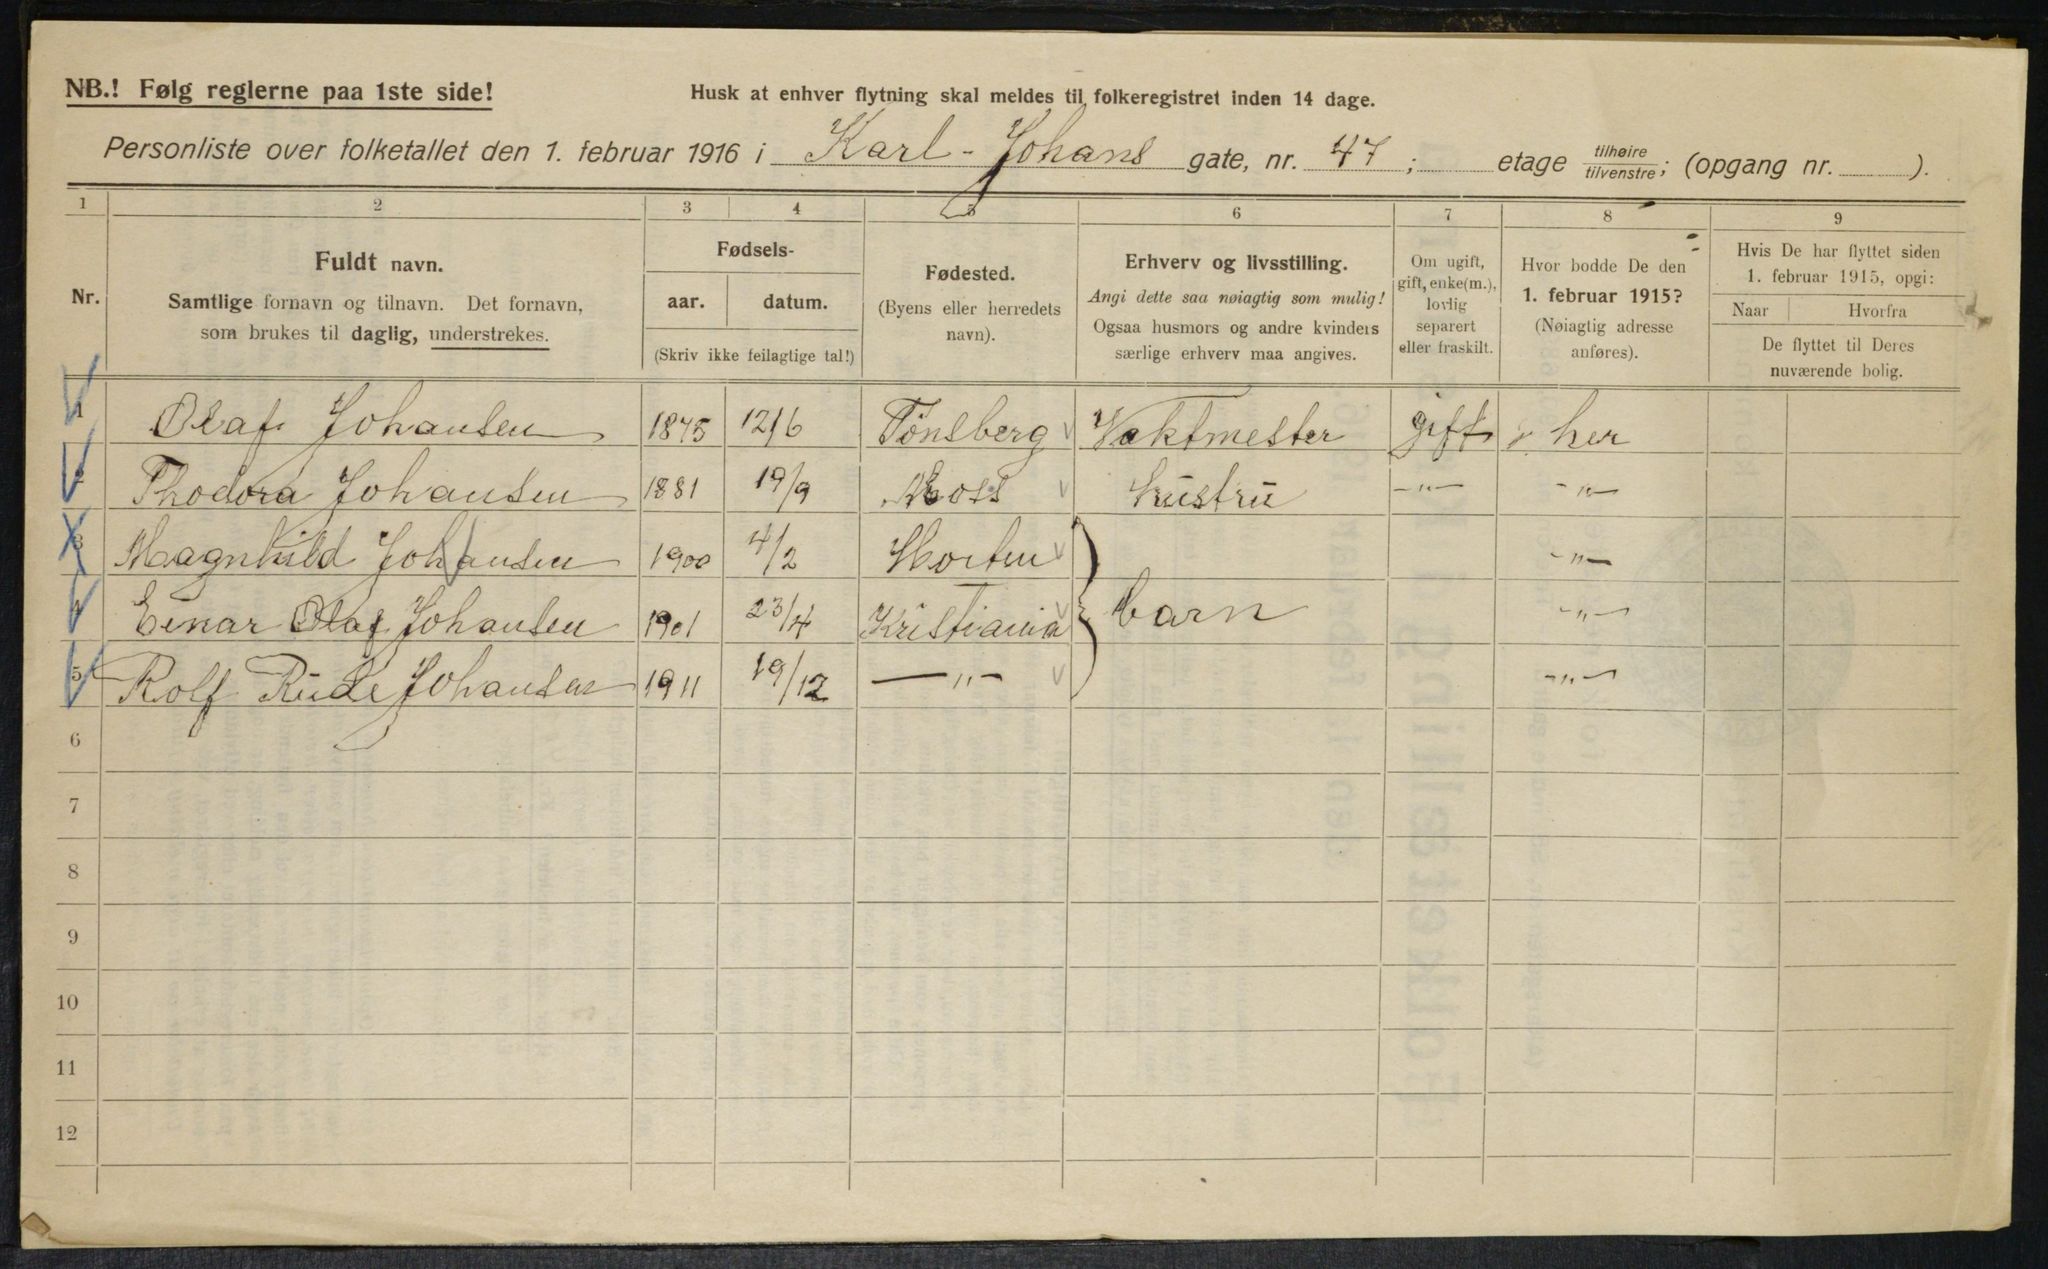 NB.! Følg reglerne paa 1ste side!
Husk at enhver flytning skal meldes til folkeregistret inden 14 dage.
Personliste over folketallet den 1. februar 1916 i Karl-Johans gate, nr. 47; etage tilhøire/tilvenstre; (opgang nr. ).
1 2 3 4 5 6 7 8 9
Nr.
Fuldt navn.
Samtlige fornavn og tilnavn. Det fornavn,
som brukes til daglig, understrekes.
Fødsels-
aar. datum.
(Skriv ikke feilagtige tal!)
Fødested.
(Byens eller herredets
navn).
Erhverv og livsstilling.
Angi dette saa nøiagtig som mulig!
Ogsaa husmors og andre kvinders
særlige erhverv maa angives.
Om ugift,
gift, enke(m.),
lovlig
separert
eller fraskilt.
Hvor bodde De den
1. februar 1915?
(Nøiagtig adresse
anføres).
Hvis De har flyttet siden
1. februar 1915, opgi:
Naar Hvorfra
De flyttet til Deres
nuværende bolig.
1 Olaf Johansen 1875 12/6 Tønsberg Vaktmester gift her
2 Thodora Johansen 1881 19/9 Moss Hustru -"- -"-
3 Magnhild Johansen 1900 4/2 Horten -"-
4 Einar Olaf Johansen 1901 23/4 Kristiania barn -"-
5 Rolf Rude Johansen 1911 19/12 -"- -"-
6
7
8
9
10
11
12